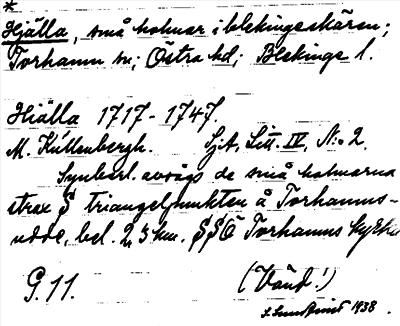 *
Hjälla, små holmar i blekingeskären;
Torhamn sn; Östra hd; Blekinge l.
Hiälla 1717-1747.
M. Kullenbergh. Sjt. Litt. IV, N:o 2.
Synbarl. avses de små holmarna
strax S triangelpunkten å Torhamns-
udde, bel. 2,3 km. SSÖ Torhamns kyrka
G. 11. (Vänd!)
1938.